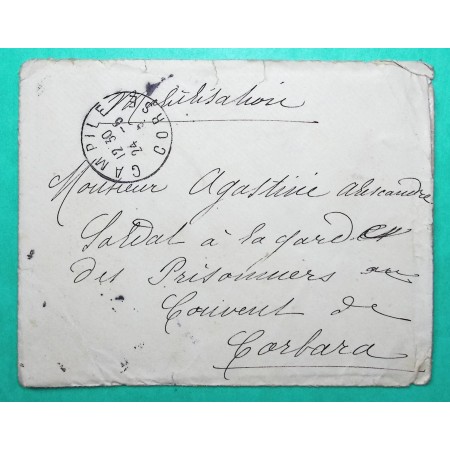 Mobilisation
CAMPILE CORSE
12 30
24 - 6
Monsieur Agostini alexandre
Soldat à la garde
des Prisonniers au
Couvent de
Corbara